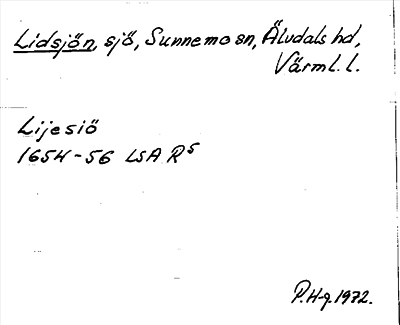 Lidsjön, sjö, Sunnemo sn, Älvdals hd,
Värml. l.
Lijesiö
1654-56 LSA R5
P.H-g. 1972.